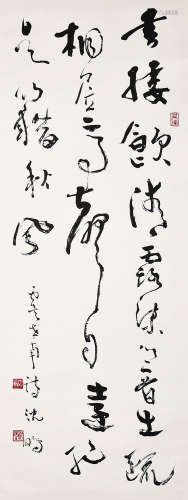 垂緌飲清露流響出疏
桐居高聲自遠非
是藉秋風
虞世南詩 沈鵬